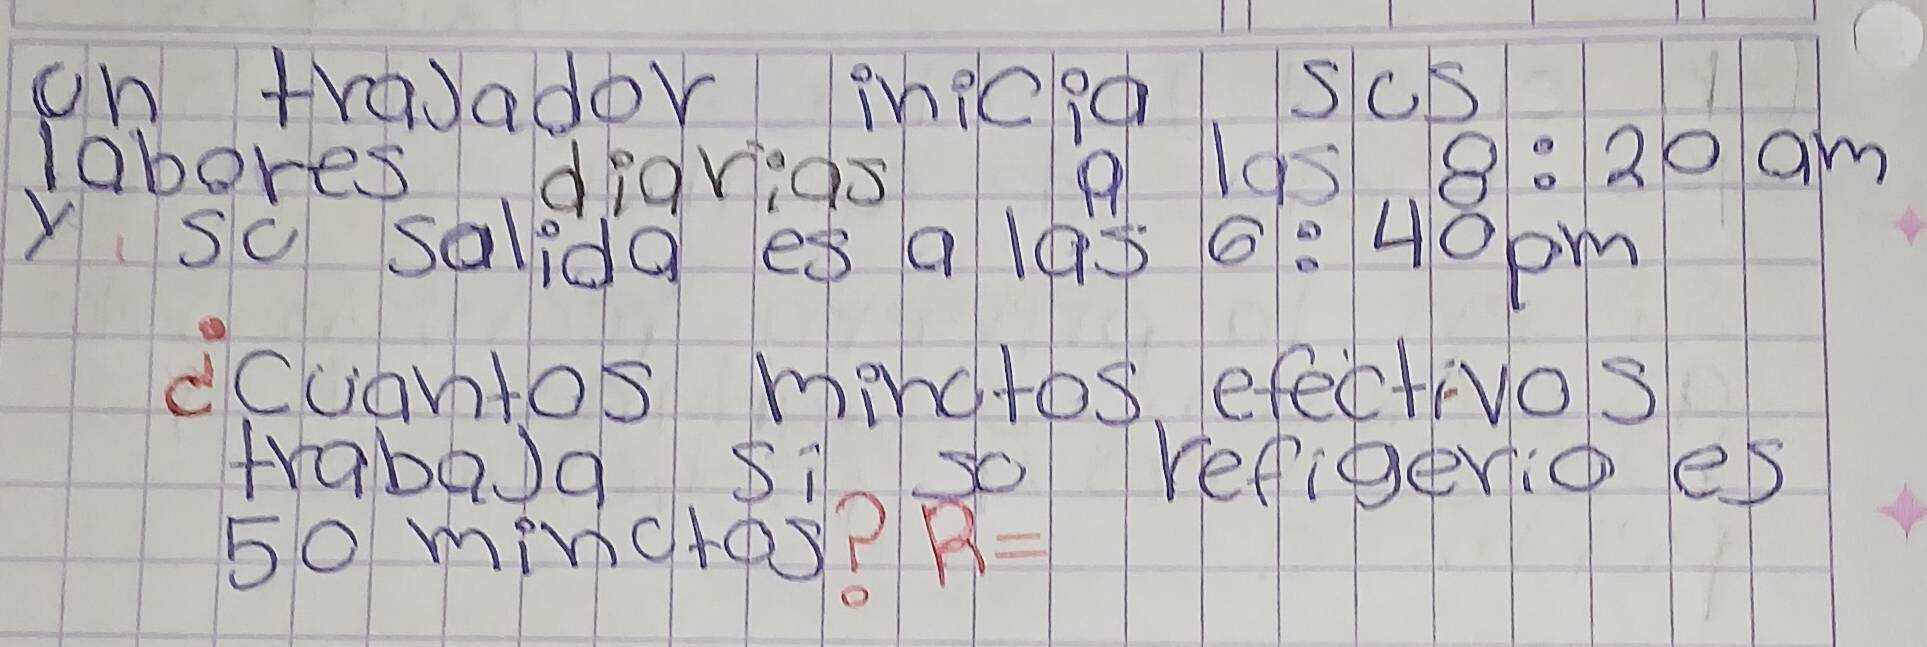 un trajador inicia sus
labores diarias a las 8:20 am
y su salida es a las 6:40 pm
¿Cuantos minutos efectivos
trabaja si su refigerio es
50 minutos? R=